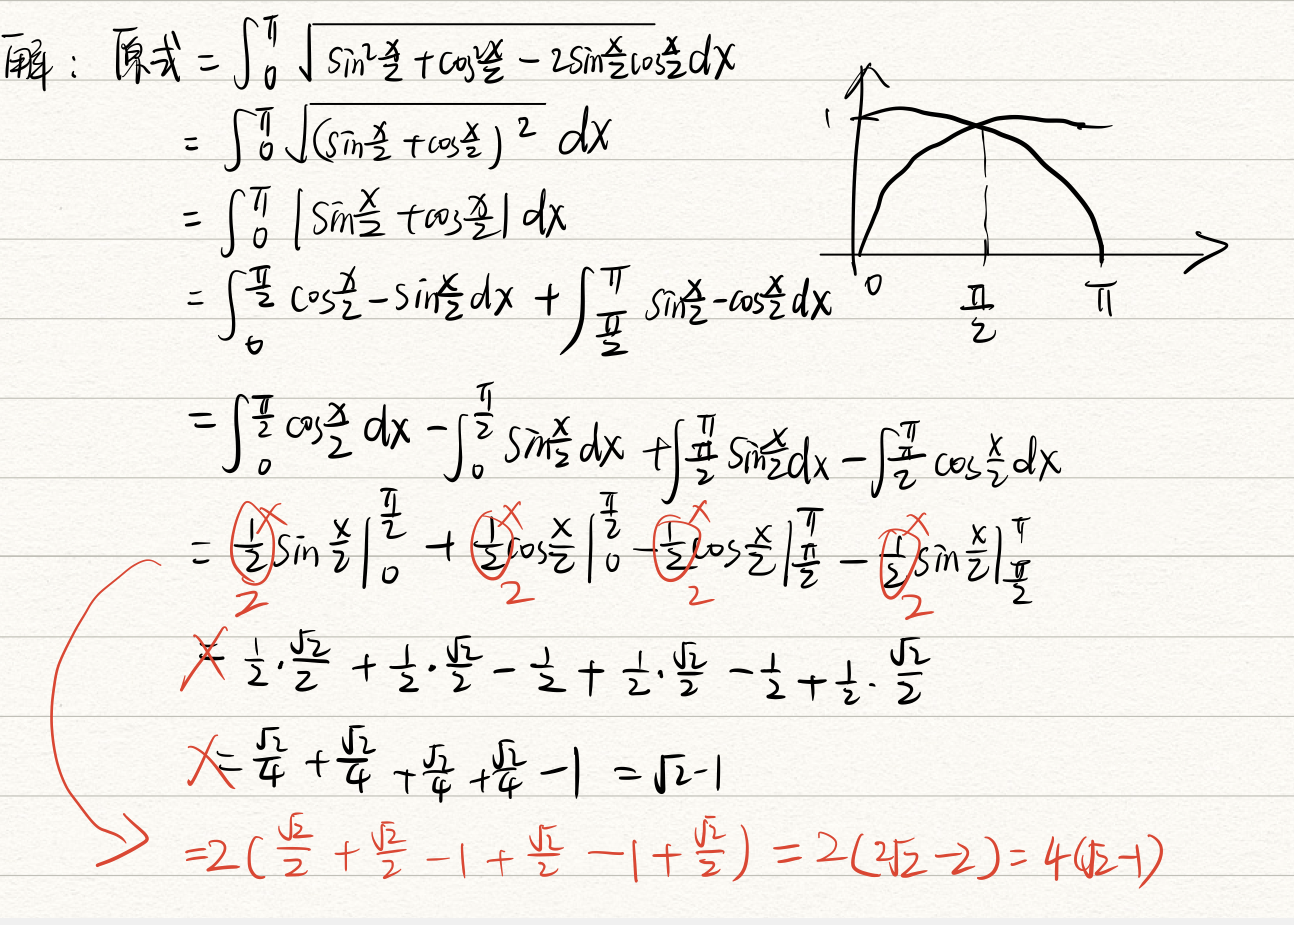 解：原式 = ∫₀^π √(sin² x/2 + cos² x/2 − 2sin x/2 cos x/2) dx
= ∫₀^π √((sin x/2 + cos x/2)²) dx
= ∫₀^π |sin x/2 + cos x/2| dx
= ∫₀^(π/2) cos x/2 − sin x/2 dx + ∫_(π/2)^π sin x/2 − cos x/2 dx
1
0 π/2 π
= ∫₀^(π/2) cos x/2 dx − ∫₀^(π/2) sin x/2 dx + ∫_(π/2)^π sin x/2 dx − ∫_(π/2)^π cos x/2 dx
× × × ×
= 1/2 sin x/2 |₀^(π/2) + 1/2 cos x/2 |₀^(π/2) − 1/2 cos x/2 |_(π/2)^π − 1/2 sin x/2 |_(π/2)^π
2 2 2 2
× = 1/2 · √2/2 + 1/2 · √2/2 − 1/2 + 1/2 · √2/2 − 1/2 + 1/2 · √2/2
× = √2/4 + √2/4 + √2/4 + √2/4 − 1 = √2 − 1
= 2(√2/2 + √2/2 − 1 + √2/2 − 1 + √2/2) = 2(2√2 − 2) = 4(√2 − 1)